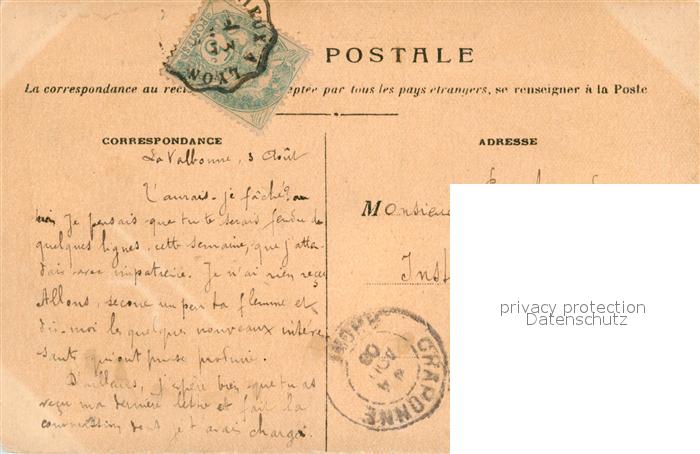 POSTALE
La correspondance au rec ptée par tous les pays étrangers, se renseigner à la Poste
CORRESPONDANCE
La Valbonne, 3 Août
T'aurais-je fâché? au
Je pensais que tu te serais fendu de
quelques lignes cette semaine, que j'atten
dais avec impatience. Je n'ai rien reçu
Allons, secoue un peu ta flemme et
dis-moi les quelques nouveaux intéres
sants qu'ont puisse produire.
D'ailleurs, j'espère bien que tu as
reçu ma dernière lettre et fait la
commission dont je t'avais chargé.
ADRESSE
Monsieu
Inst
privacy protection
Datenschutz
LYON
CHAPONNE